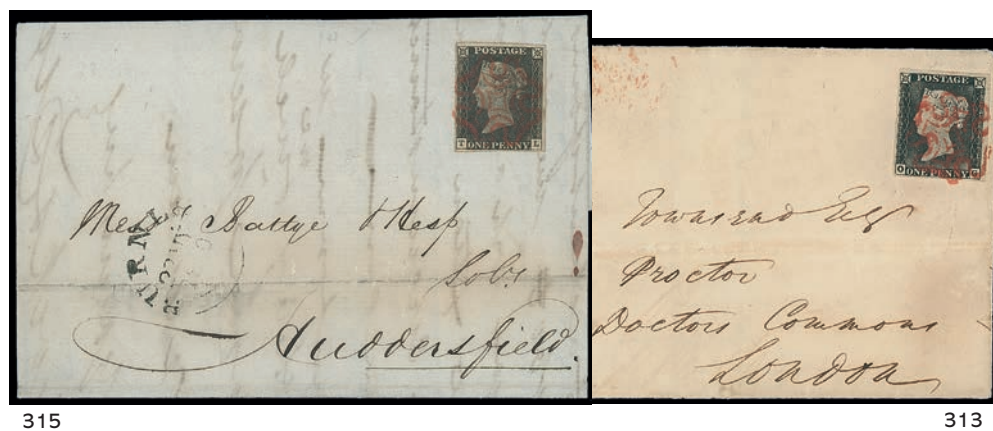 POSTAGE
ONE PENNY L
Messrs Battye & Hesp
Solrs
Huddersfield.
315
POSTAGE
O ONE PENNY G
Townsend Esq
Proctor
Doctors Commons
London
313